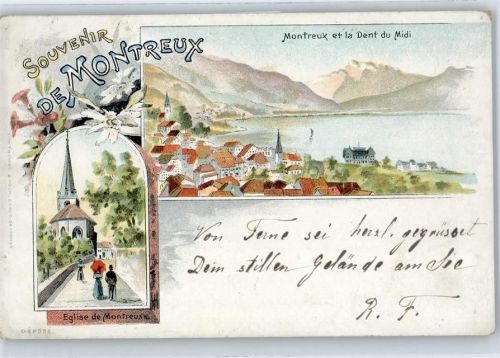 SOUVENIR
DE MONTREUX
Montreux et la Dent du Midi
Eglise de Montreux
Von Ferne sei herzl. gegrüsset
Dein stillen Gelände am See
R. F.
DEPOSE